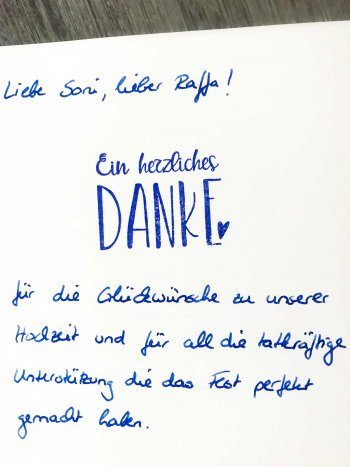 Liebe Soni, lieber Raffa!
Ein herzliches
DANKE
für die Glückwünsche zu unserer
Hochzeit und für all die tatkräftige
Unterstützung die das Fest perfekt
gemacht haben.